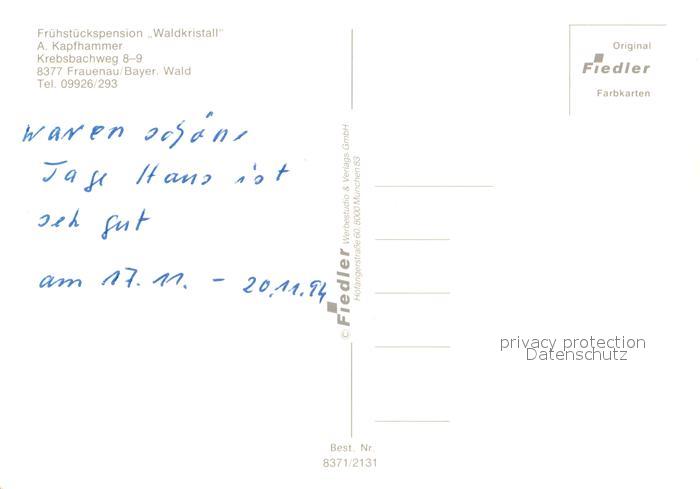 Frühstückspension „Waldkristall"
A. Kapfhammer
Krebsbachweg 8–9
8377 Frauenau/Bayer. Wald
Tel. 09926/293
waren schöne
Tage Haus ist
seh gut
am 17.11. – 20.11.94
© Fiedler Werbestudio & Verlags-GmbH
Hofangerstraße 60, 8000 München 83
Original
Fiedler
Farbkarten
privacy protection
Datenschutz
Best. Nr.
8371/2131